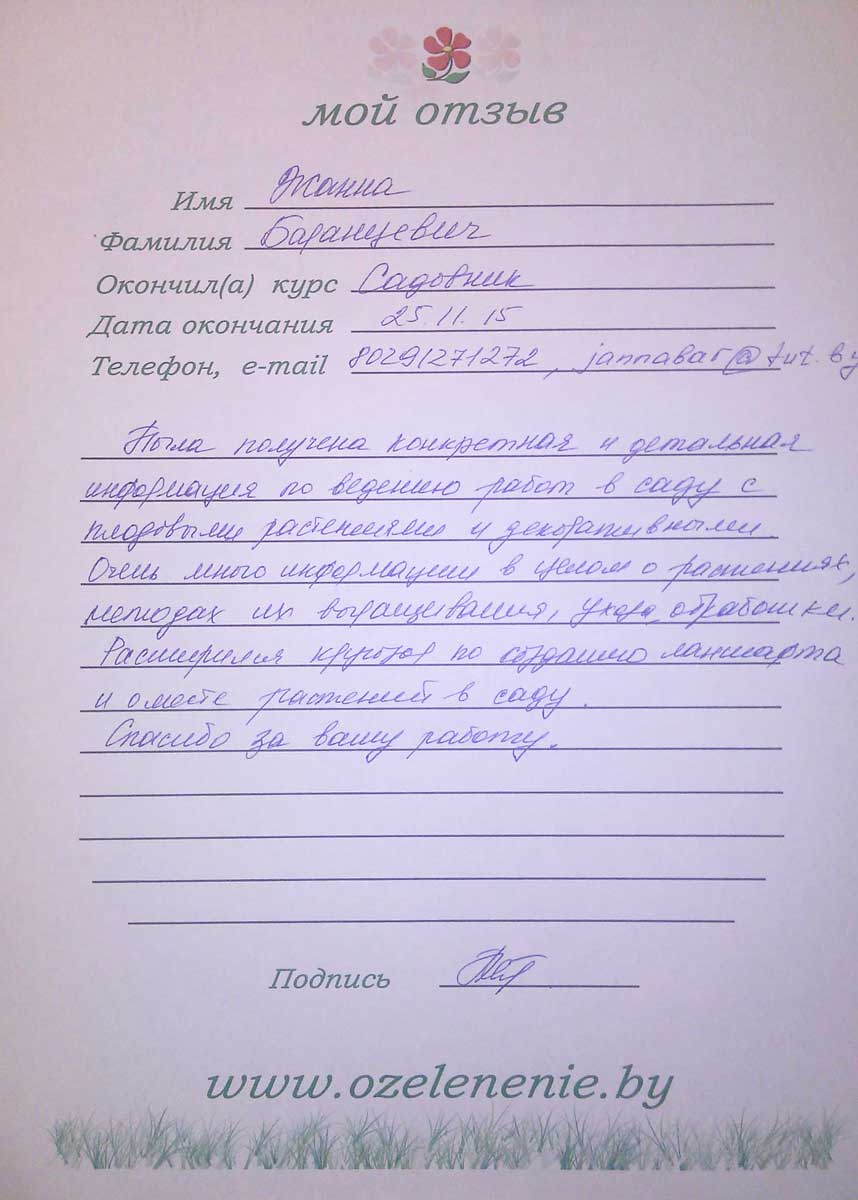 мой отзыв
Имя Жанна
Фамилия Баранцевич
Окончил(а) курс Садовник
Дата окончания 25.11.15
Телефон, e-mail 80291271272, jannabar@tut.by
Была получена конкретная и детальная
информация по ведению работ в саду с
плодовыми растениями и декоративными.
Очень много информации в целом о растениях,
методах их выращивания, ухода, обработки.
Расширился кругозор по созданию ланшафта
и о месте растений в саду.
Спасибо за вашу работу.
Подпись
www.ozelenenie.by